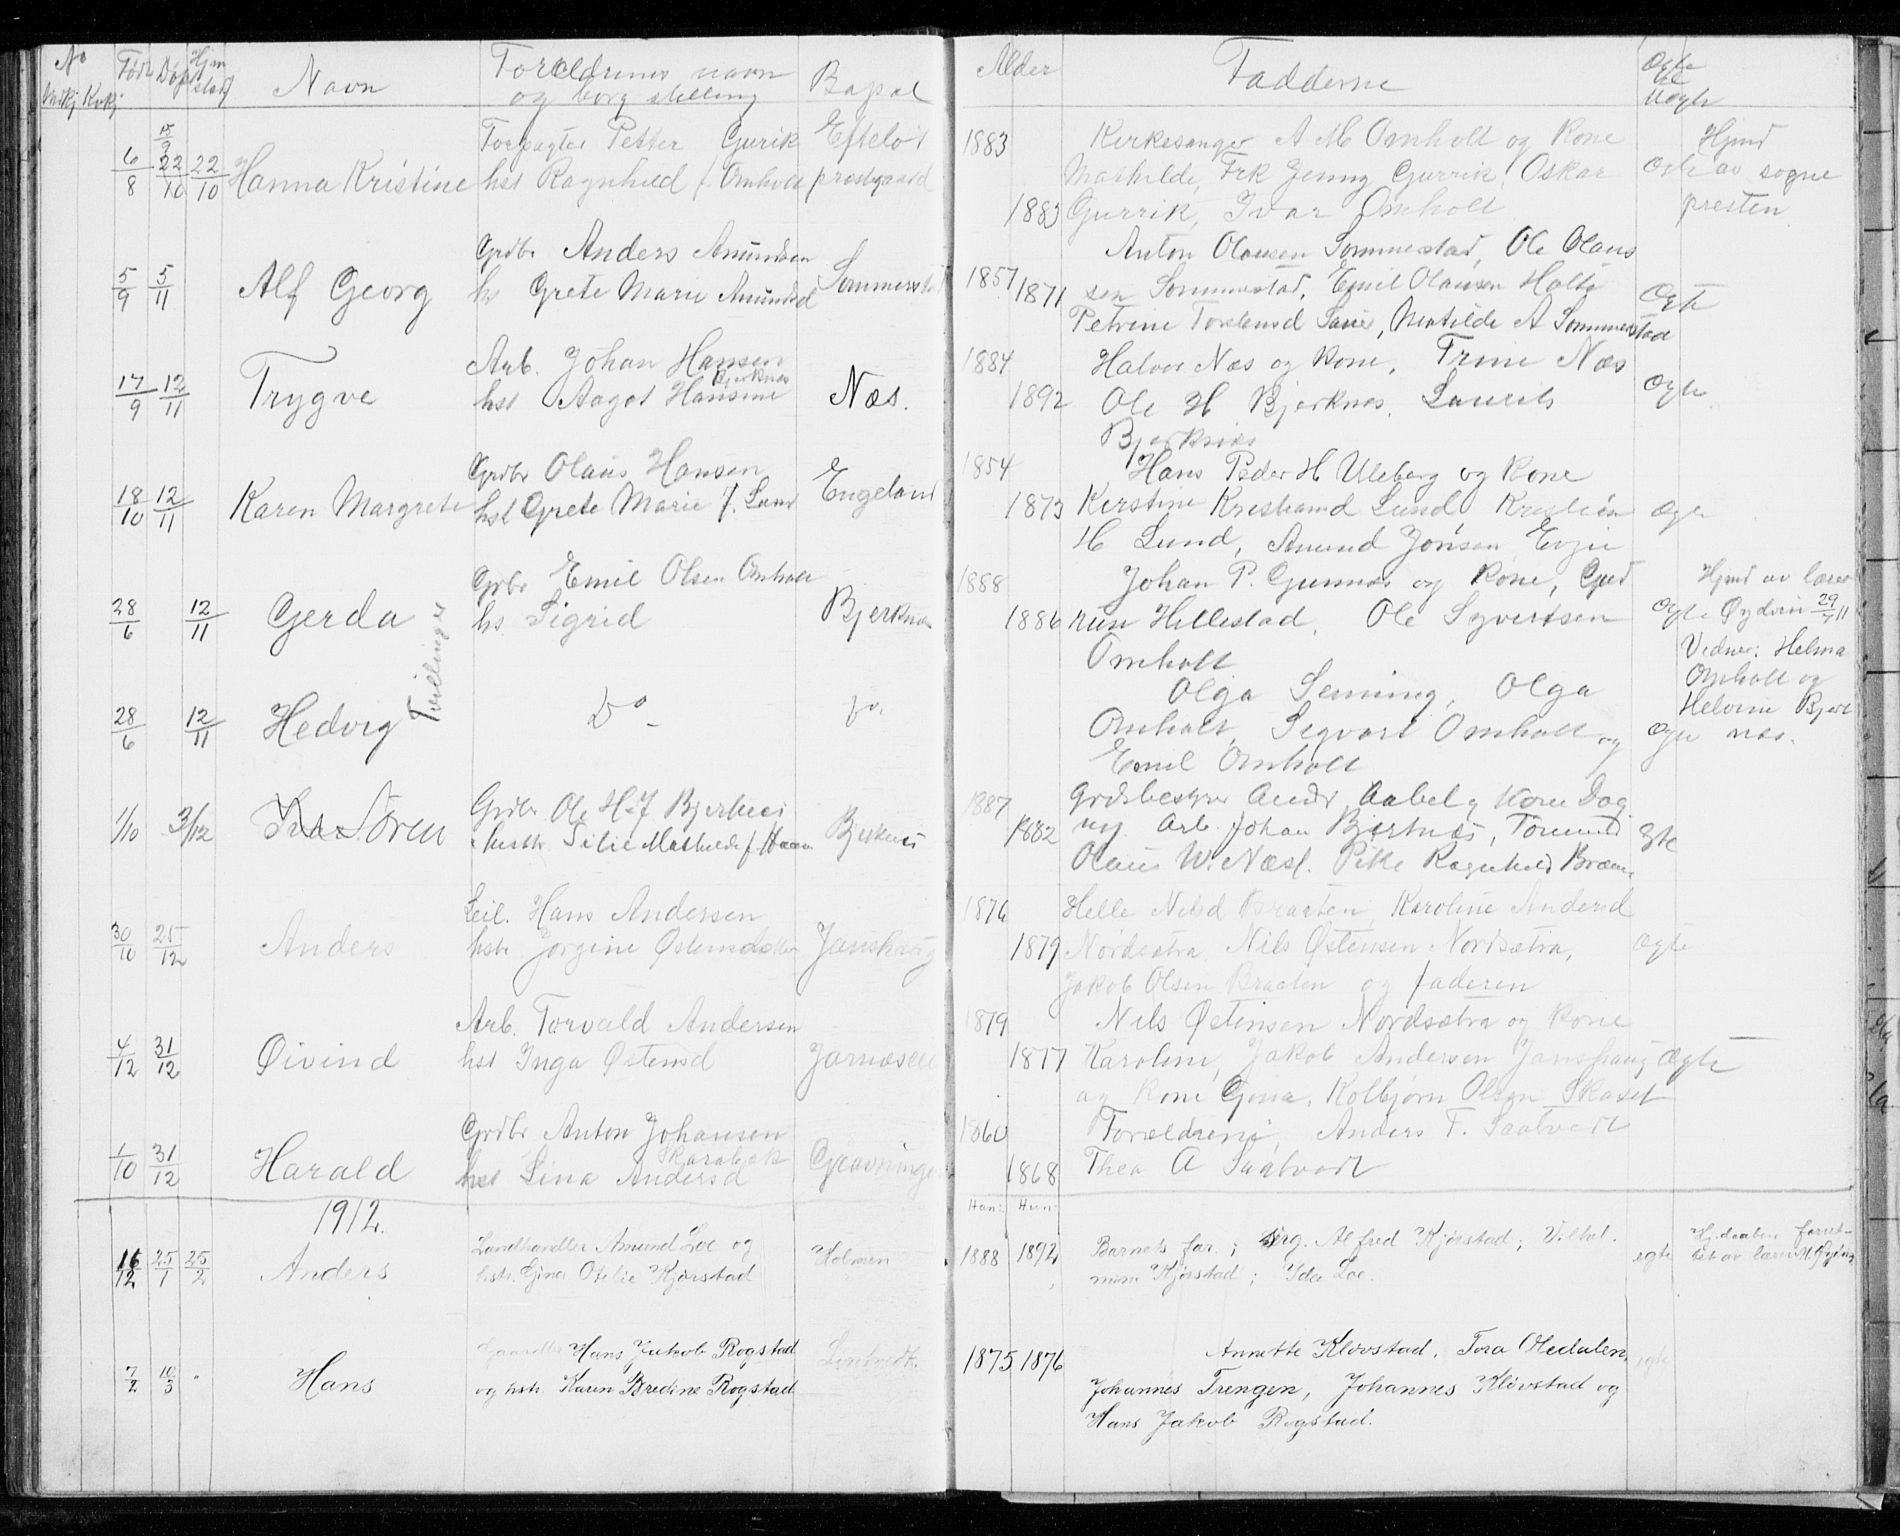 No Mkj Kvkj Født Døpt Hjm døbt Navn Forældrenes navn og borg stilling Bopæl Alder Fadderne Ægte el Uægte
15/9
6/8 22/10 22/10 Hanna Kristine
Forpagter Petter Gurrik
hst Ragnhild f. Omholt
Efteløt
prestgaard
1883
1883
Kirkesanger A M Omholt og kone
Mathilde, Frk Jenny Gurrik, Oskar
Gurrik, Ivar Omholt
Ægte
Hjmd
av sogne
presten
5/9 5/11 Alf Georg
Grdbr Anders Amundsen
hs Grete Marie Amundsd
Sommerstad
1857
1871
Anton Olausen Sommestad, Ole Olaus
sen Sommestad, Emil Olausen Holte
Petrine Torslensd Saue, Matilde A Sommerstad
Ægte
17/9 12/11 Trygve
Arb. Johan Hansen
Bjerknæs
hst Aagot Hansine
Næs.
1884
1892
Halvor Næs og kone, Trine Næs
Ole H Bjerknæs, Laurits
Bjerknæs
Ægte
18/10 12/11 Karen Margrete
Grdbr Olaus Hansen
hst Grete Marie J. Lund
Engeland
1854
1873
Hans Peder H Uleberg og kone
Kirstine Kristiansd Lund Kristian
H Lund, Amund Jonsen Evju
Ægte
28/6 12/11 Gerda
Tvillinger
Grbr Emil Olsen Omholt
hs Sigrid
Bjerknæs
1888
1886
Johan P. Gunnæs og kone, Gud
run Hellestad, Ole Syvertsen
Omholt
Ægte
Hjmd av lærer
Øydvin 29/7 11
Vidner: Helma
Omholt og
Helvine Bjerk
næs.
28/6 12/11 Hedvig
Do
Do
Olga Senning, Olga
Omholt, Segvart Omholt og
Emil Omholt
Ægte
1/10 3/12 Søren
Grdbr Ole H. J Bjerknes
hustr. Silie Mathilde f. Haan
Bjerknes
1887
1882
Grdsbestyrer Andr. Aabel og Kone Dag
ny. Arb. Johan Bjerknæs, Tømmerm
Olaus W. Næss. Pike Ragnhild Bræne
Ægte
30/10 25/12 Anders
Leil. Hans Andersen
hstr Jorgine Østensdatter
Janshaug
1876
1879
Helle Nilsd Braaten, Karoline Andersd
Nordsætra, Nils Østensen Nordsætra,
Jakob Olsen Braaten og faderen
Ægte
4/12 31/12 Øivind
Arb. Torvald Andersen
hst Inga Østensd
Jarnæseie
1879
1877
Nils Østensen Nordsætra og kone
Karoline, Jakob Andersen Janshaug
og kone Gina, Kolbjørn Olsen Skaset
Ægte
1/10 31/12 Harald
Grdbr Anton Johansen
Skarabæk
hst Lina Andersd
Gravninge
1860
1868
Forældrene, Anders T. Saatvedt
Thea A Saatvedt
1912.
Han: Hun:
16/12 25/1 25/2 Anders
Landhandler Amund Loe og
hstr. Gina Otelie Kjørstad
Holmen
1888 1892
Barnets far; Alfred Kjørstad; Vilhel.
mine Kjørstad; Ida Loe.
egte
Hj.daaben forret-
tet av lærer N. Øydvin
7/2 10/3 Hans
Hans Jakob Rogstad
og hstr. Karen Bredine Rogstad
Lintvedt.
1875 1876
Annette Kløvstad, Tora Hedalen,
Johannes Trengen, Johannes Kløvstad og
Hans Jakob Rogstad.
egte